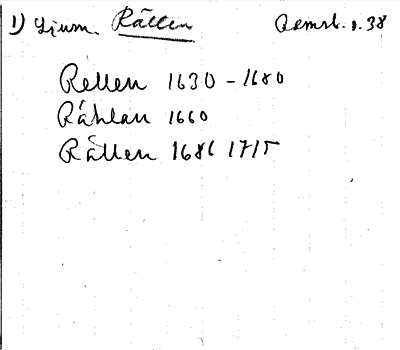 1) Ljum. Rällen Remsl. s. 38
Rellen 1630 - 1680
Råhlan 1660
Rällen 1686 1715